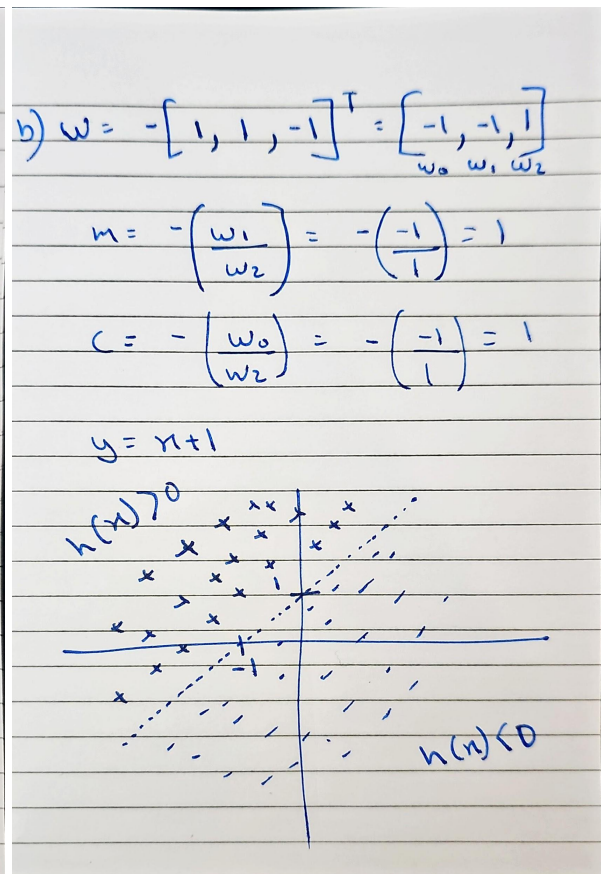 b) w = -[1, 1, -1]ᵀ = [-1, -1, 1]
w₀ w₁ w₂
m = -(w₁/w₂) = -(-1/1) = 1
c = -(w₀/w₂) = -(-1/1) = 1
y = x+1
h(x)>0
1
-1
h(x)<0